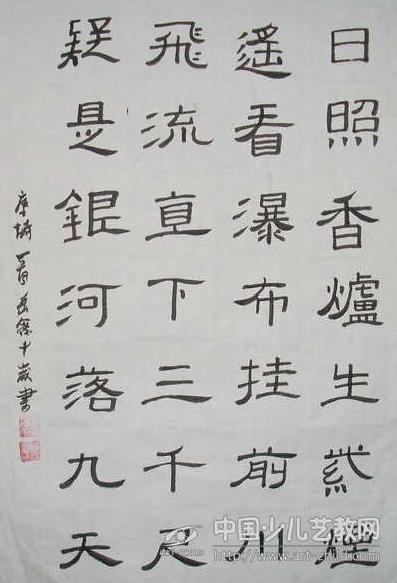 日照香爐生紫煙
遙看瀑布挂前川
飛流直下三千尺
疑是銀河落九天
十歲書
中国少儿艺教网
http://www.art-child.com